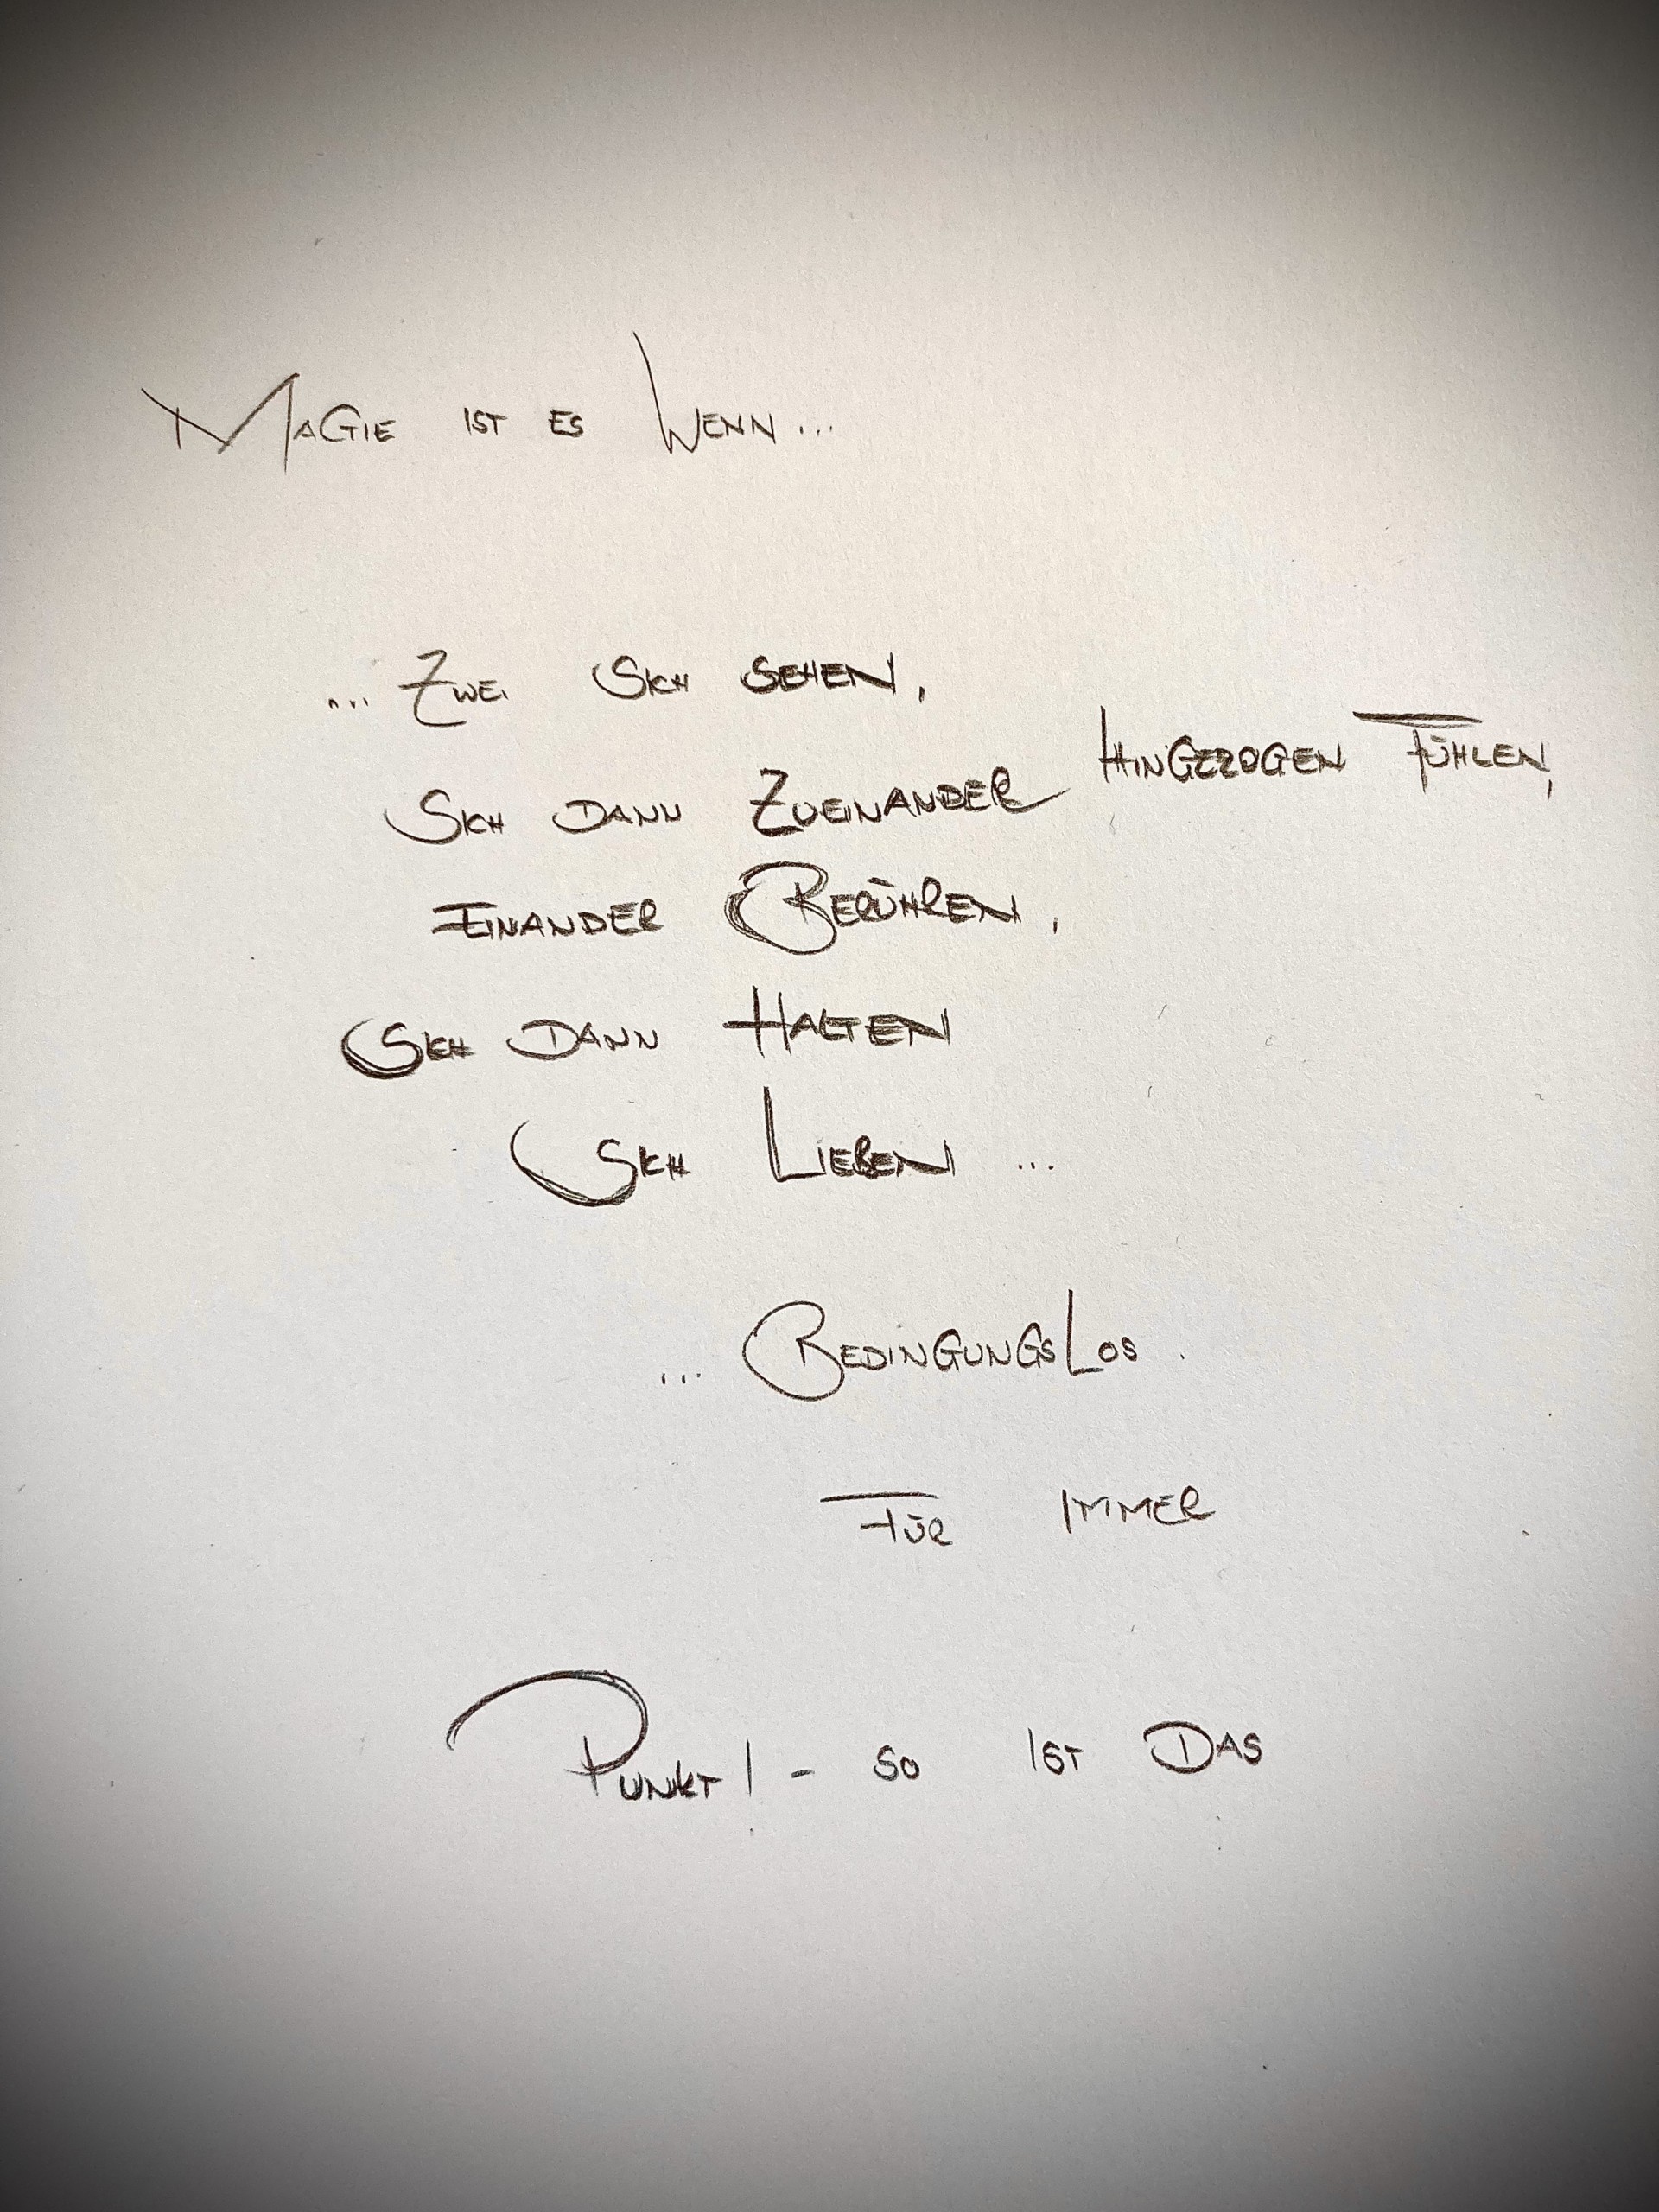 Magie ist es Wenn...
... Zwei Sich sehen,
Sich dann Zueinander Hingezogen Fühlen,
Einander Berühren,
Sich Dann Halten
Sich Lieben ...
... BedingungsLos.
Für Immer
Punkt! - so Ist Das